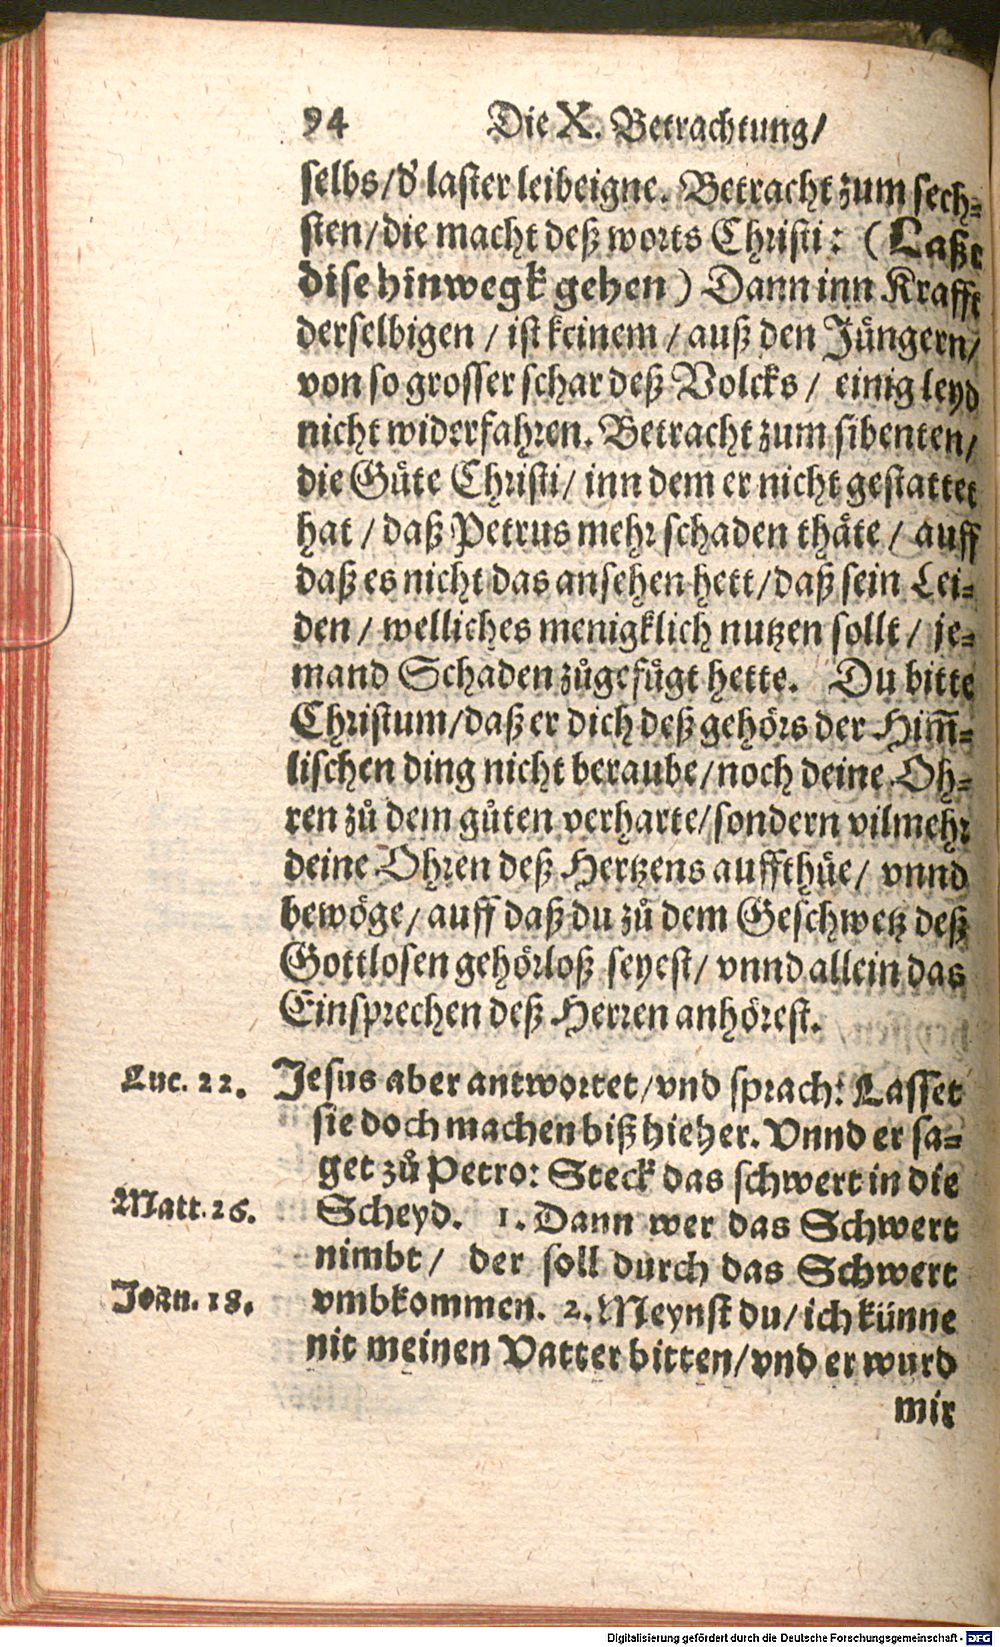 94 Die X. Betrachtung/
selbs/d' laster leibeigne. Betracht zum sech-
sten/die macht deß worts Christi: (Laßt
dise hinwegk gehen) Dann inn Krafft
derselbigen / ist keinem / auß den Jüngern/
von so grosser schar deß Volcks / einig leyd
nicht widerfahren. Betracht zum sibenten/
die Guͤte Christi/ inn dem er nicht gestattet
hat / daß Petrus mehr schaden thaͤte / auff
daß es nicht das ansehen hett/daß sein Lei-
den / welliches menigklich nutzen sollt / je-
mand Schaden zuͦgefuͤgt hette. Du bitte
Christum/daß er dich deß gehoͤrs der Him̅-
lischen ding nicht beraube/noch deine Oh-
ren zuͦ dem guͦten verharte/sondern vilmehr
deine Ohren deß Hertzens auffthuͤe/ vnnd
bewoͤge/auff daß du zuͦ dem Geschwetz deß
Gottlosen gehoͤrloß seyest/ vnnd allein das
Einsprechen deß Herren anhoͤrest.
Luc. 22. Jesus aber antwortet/vnd sprach: Lasset
sie doch machen biß hieher. Vnnd er sa-
get zuͦ Petro: Steck das schwert in die
Matt. 26. Scheyd. 1. Dann wer das Schwert
nimbt/ der soll durch das Schwert
Joan. 18. vmbkommen. 2. Meynst du/ich künne
nit meinen Vatter bitten/vnd er wurd
mir
Digitalisierung gefördert durch die Deutsche Forschungsgemeinschaft - DFG